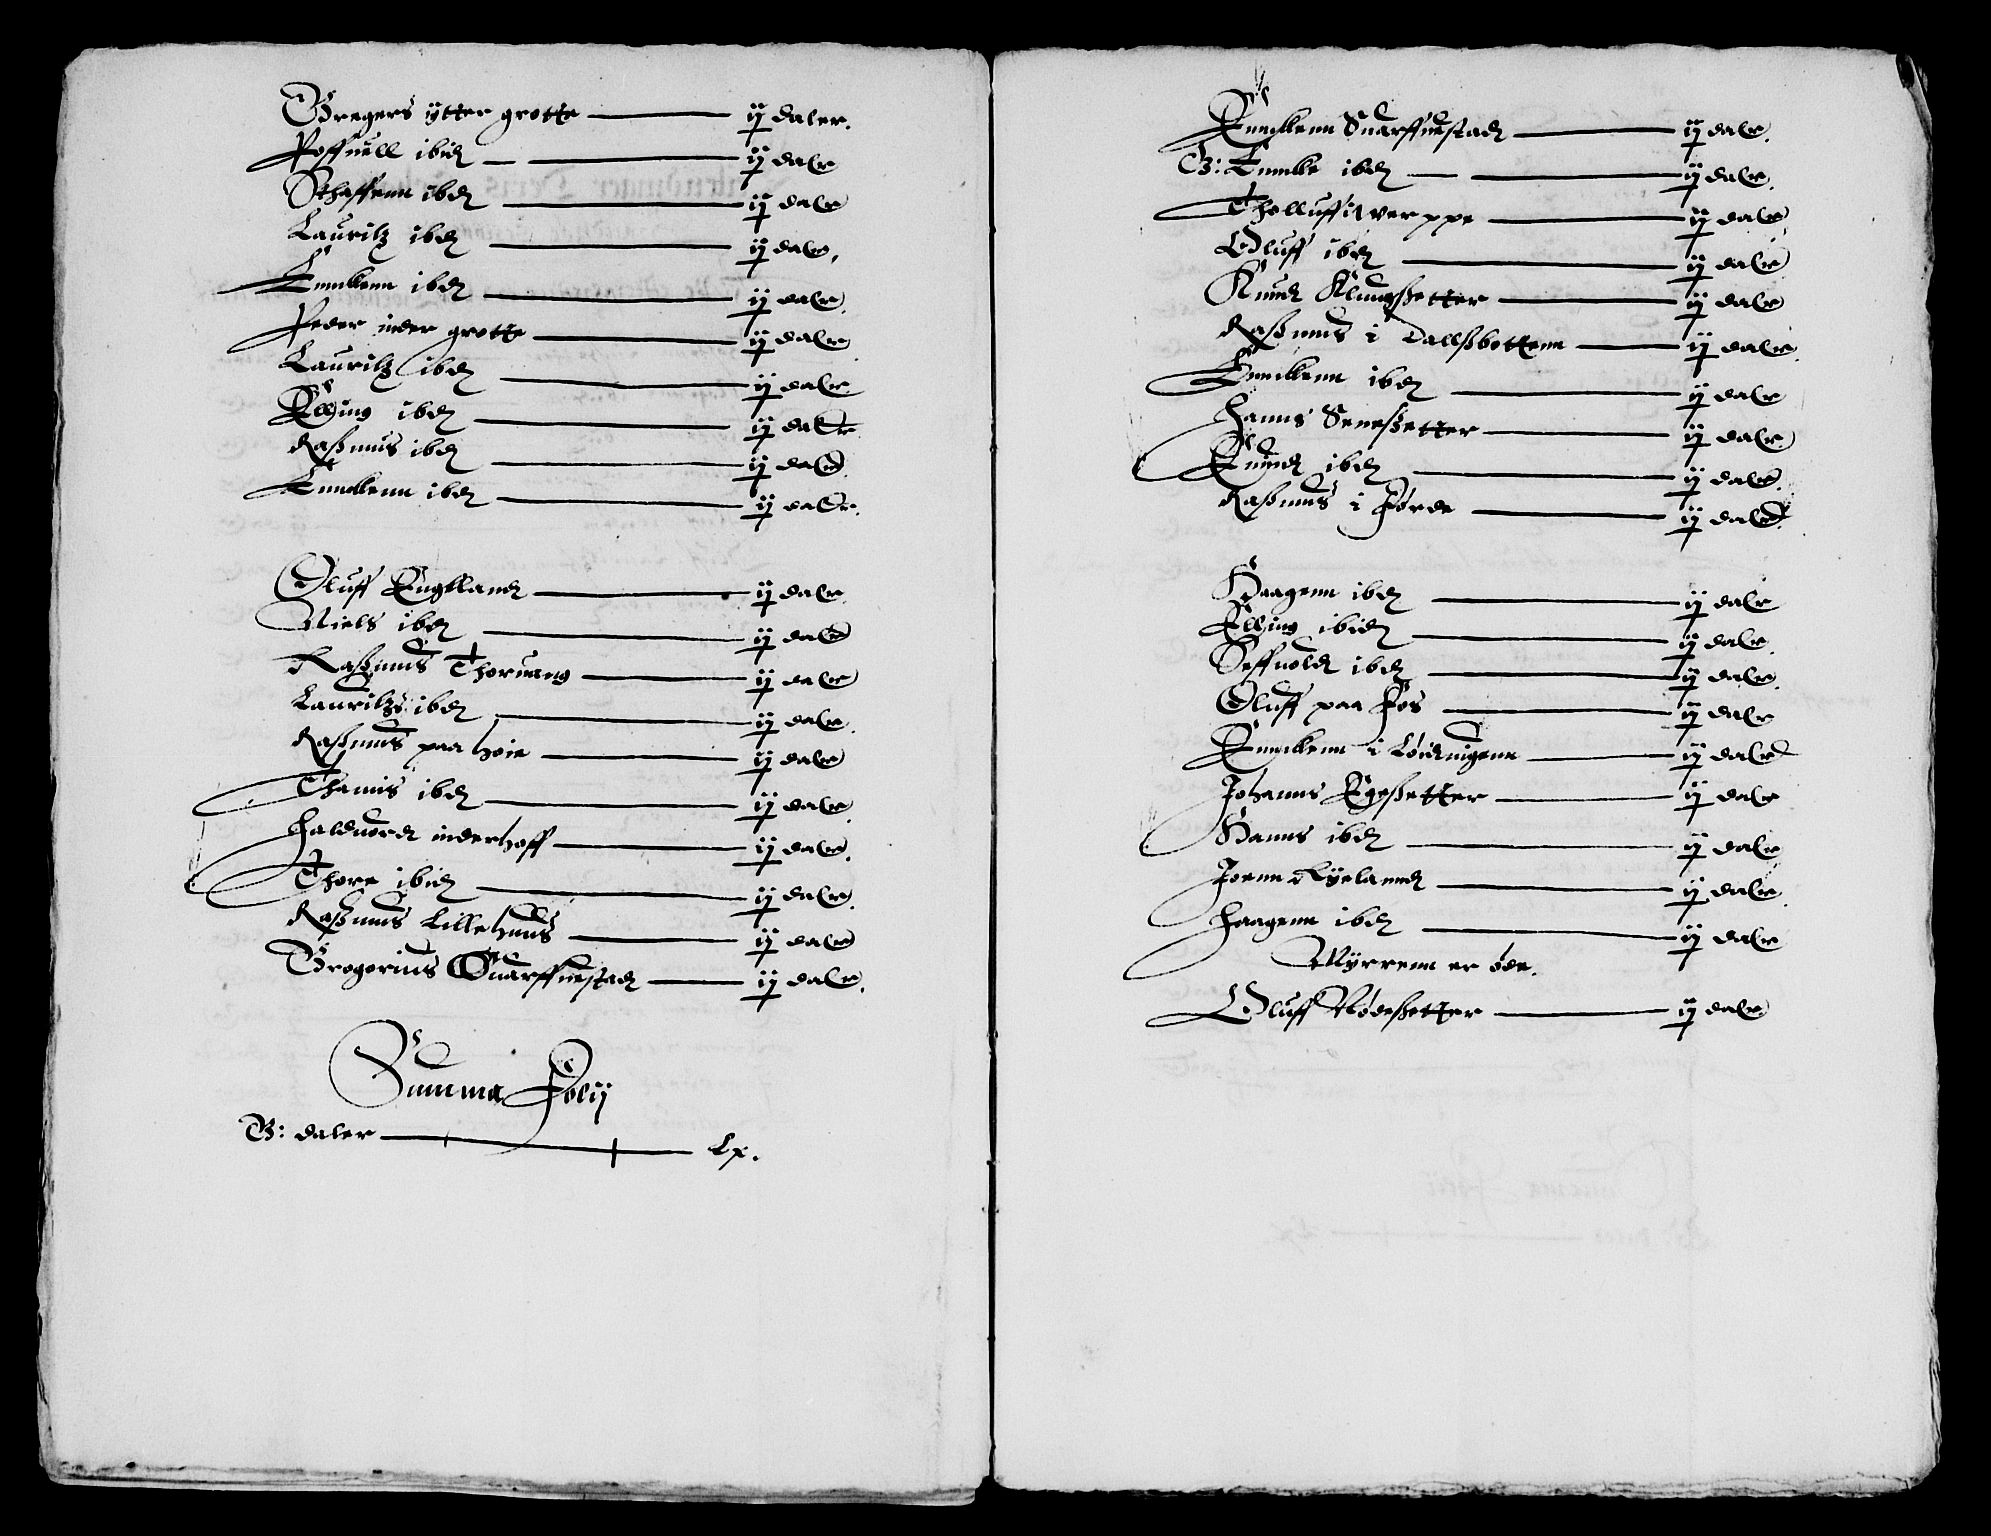 Gregers ÿtter grotte — ij daler.
Poffuell ibid — ij daler
Staffenn ibid — ij daler
Lauritz ibid — ij daler,
Enuickenn ibid — ij daler
Peder inder grotte — ij daler
Lauritz ibid — ij daler
Elling ibid — ij daler
Rasmus ibid — ij daler
Enuickenn ibid — ij daler.
Oluff Engelland — ij daler
Niels ibid — ij daler
Rasmus Thoruang — ij daler
Lauritzs ibid — ij daler
Rasmus paa hoie — ij daler
Thamis ibid — ij daler
Halduord inderhoff — ij daler
Thore ibid — ij daler
Rasmus Lillehuus — ij daler
Gregorius Suarffuestad — ij daler.
Summa Folij
R: daler — Lx.
Enuickenn Suarffuestad — ij daler.
B: Enuicke ibid — ij daler
Tholluff i verppe — ij daler
Oluff ibid — ij daler
Knud Klungsetter — ij daler
Rasmus i Dallsbottenn — ij daler
Enuickenn ibid — ij daler
Hanns Senesetter — ij daler
Knud ibid — ij daler
Rasmus i Førde — ij daler
Haagenn ibid — ij daler
Elling ibid — ij daler
Seffuold ibid — ij daler
Oluff paa Fos — ij daler
Enuickenn i Løidningenn — ij daler
Johanns Egesetter — ij daler
Hanns ibid — ij daler
Joenn Ryeland — ij daler
Haagenn ibid — ij daler
Myrrenn er øde.
Oluff Rødesetter — ij daler